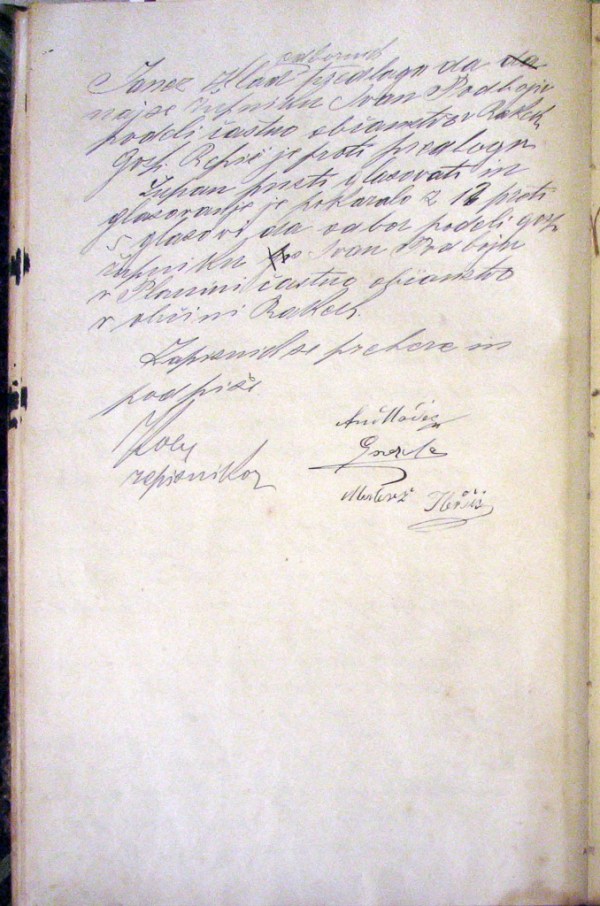 odbornik
Janez Hlad predlaga da da
naj se župniku Ivan Podboju
podeli častno občanstvo v Rakek,
Gosp. Repič je proti predlogu
Župan pusti glasovati in
glasovanje je pokazalo z 12 proti
5 glasovi da odbor podeli gosp
župniku Ivan Podboju
v Planini častno občanstvo
v občini Rakek.
Zapisnik se prebere in
podpiše
zapisnikar